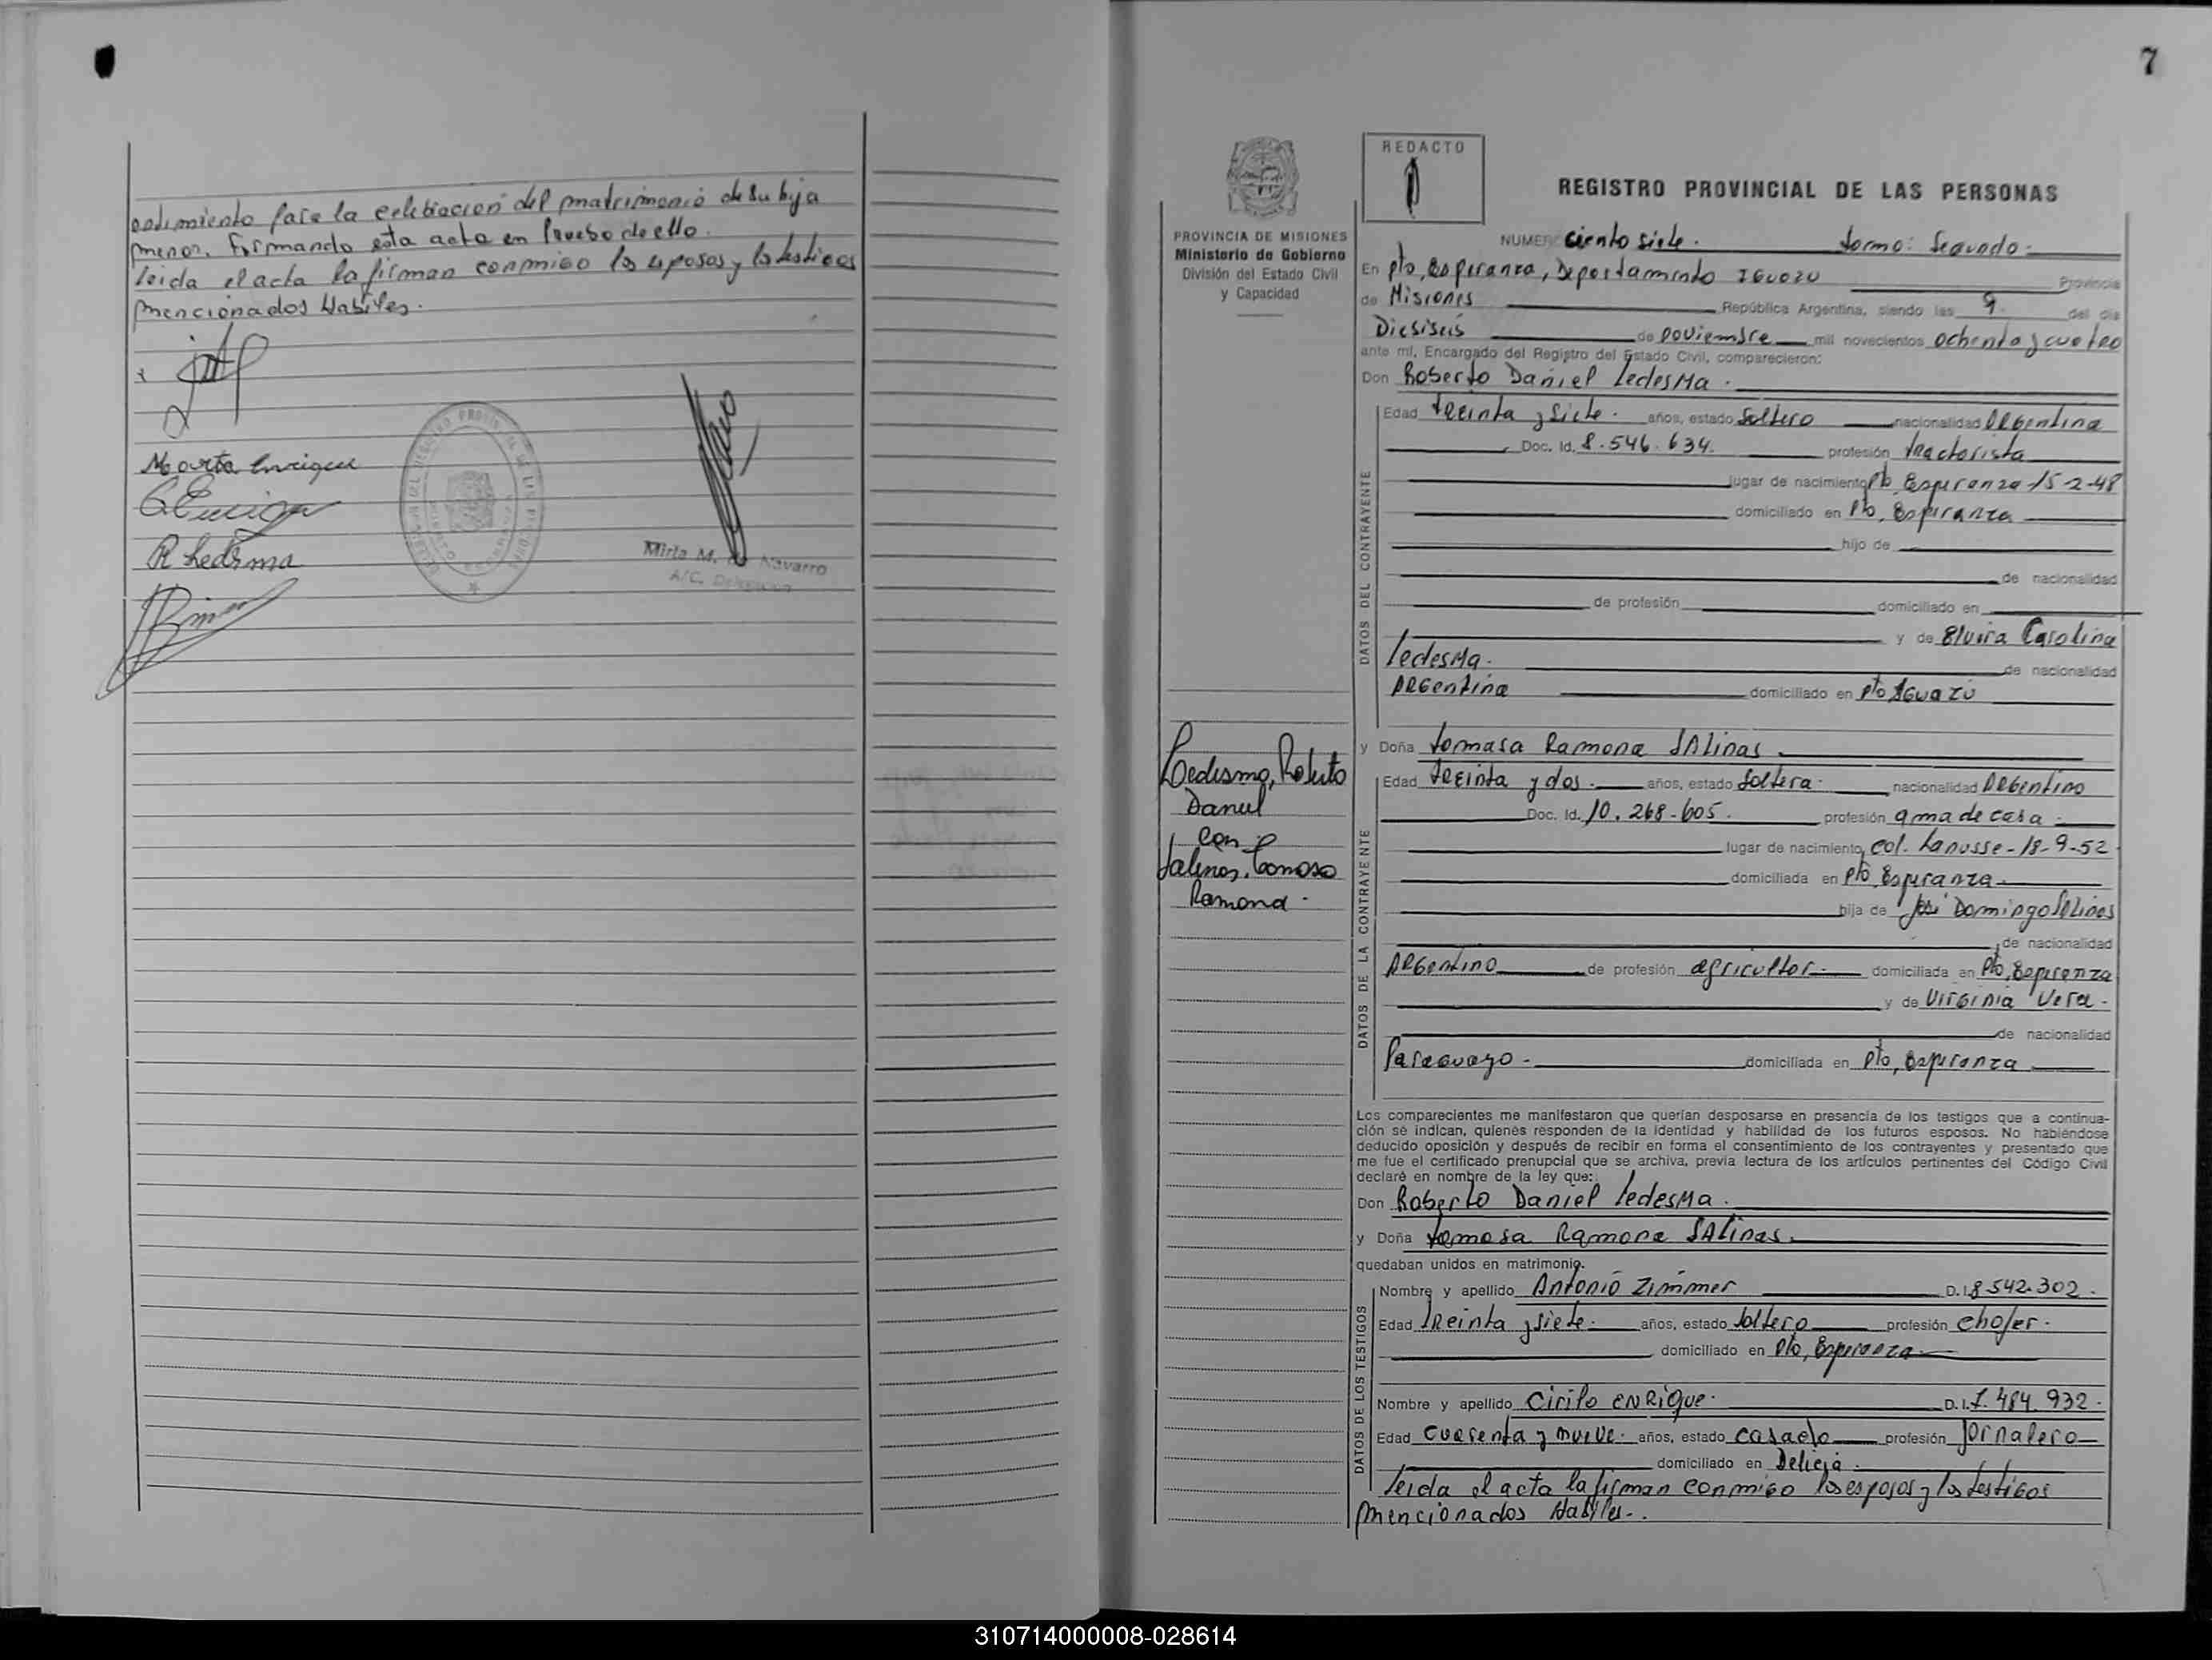 para la celebracion del matrimonio de su hija
menor. Firmando esta acta en Prueba de ello.
leida el acta la firman conmigo los esposos y los testigos
mencionados Habiles.
Marta Enrique
R Ledesma
Mirta M. Navarro
A/C. Delegacion
7
REDACTO
REGISTRO PROVINCIAL DE LAS PERSONAS
PROVINCIA DE MISIONES
Ministerio de Gobierno
División del Estado Civil
y Capacidad
NUMERO ciento siete. tomo: Segundo:
En Pto, Esperanza, Departamento IGUAZU Provincia
de Misiones República Argentina, siendo las 9. del día
Dieciseis de noviembre mil novecientos ochenta y cuatro
ante mí, Encargado del Registro del Estado Civil, comparecieron:
Don Roberto Daniel LedesMa.
DATOS DEL CONTRAYENTE
Edad treinta y siete. años, estado Soltero nacionalidad ARGentina
Doc. Id. 8.546.634. profesión tractorista
lugar de nacimiento Pto, Esperanza 15-2-48
domiciliado en Pto, Esperanza
hijo de
de nacionalidad
de profesión domiciliado en
y de Elvira Carolina
LedesMa. de nacionalidad
ARGentina domiciliado en Pto IGuazú
Ledesma, Roberto
Daniel
con
Salinas, Tomasa
Ramona.
y Doña tomasa Ramona SAlinas.
DATOS DE LA CONTRAYENTE
Edad treinta y dos. años, estado Soltera. nacionalidad ARGentina
Doc. Id. 10.268.605. profesión ama de casa.
lugar de nacimiento, Col. Lanusse - 18-9-52
domiciliada en Pto, Esperanza.
hija de José Domingo SAlinas
de nacionalidad
ARGentino de profesión agricultor. domiciliada en Pto, Esperanza
y de VirGinia Vera.
de nacionalidad
ParaGuayo. domiciliada en Pto, Esperanza
Los comparecientes me manifestaron que querían desposarse en presencia de los testigos que a continua-
ción se indican, quienes responden de la identidad y habilidad de los futuros esposos. No habiéndose
deducido oposición y después de recibir en forma el consentimiento de los contrayentes y presentado que
me fue el certificado prenupcial que se archiva, previa lectura de los artículos pertinentes del Código Civil
declaré en nombre de la ley que:
Don Roberto Daniel LedesMa.
y Doña tomasa Ramona SAlinas.
quedaban unidos en matrimonio.
DATOS DE LOS TESTIGOS
Nombre y apellido Antonio Zimmer D.I. 8.542.302.
Edad treinta y siete. años, estado Soltero profesión chofer.
domiciliado en Pto, Esperanza
Nombre y apellido Cirilo ENRique. D.I. 7.484.932.
Edad cuarenta y nueve. años, estado casado profesión jornalero
domiciliado en Delicia.
leida el acta la firman conmigo los esposos y los testigos
mencionados Habiles.
310714000008-028614